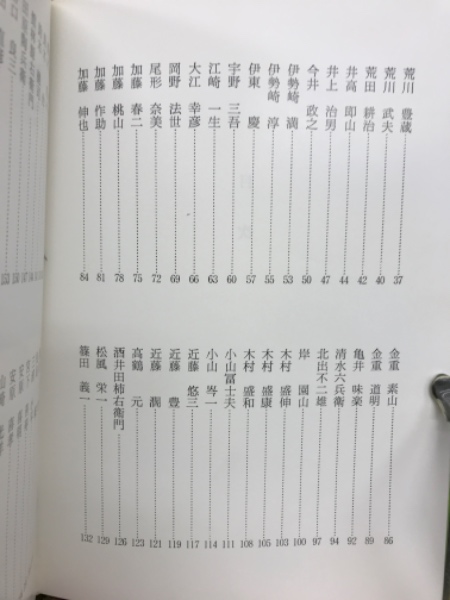 荒川 豊蔵 37
荒川 武夫 40
荒田 耕治 42
井高 即山 44
井上 治男 47
今井 政之 50
伊勢崎 満 53
伊勢崎 淳 55
伊東 慶 57
宇野 三吾 60
江崎 一生 63
大江 幸彦 66
岡野 法世 69
尾形 奈美 72
加藤 春二 75
加藤 桃山 78
加藤 作助 81
加藤 伸也 84
金重 素山 86
金重 道明 89
亀井 味楽 92
清水六兵衛 94
北出不二雄 97
岸 園山 100
木村 盛伸 103
木村 盛康 105
木村 盛和 108
小山冨士夫 111
小山 岑一 114
近藤 悠三 117
近藤 豊 119
近藤 濶 121
高鶴 元 123
酒井田柿右衛門 126
松風 栄一 129
篠田 義一 132